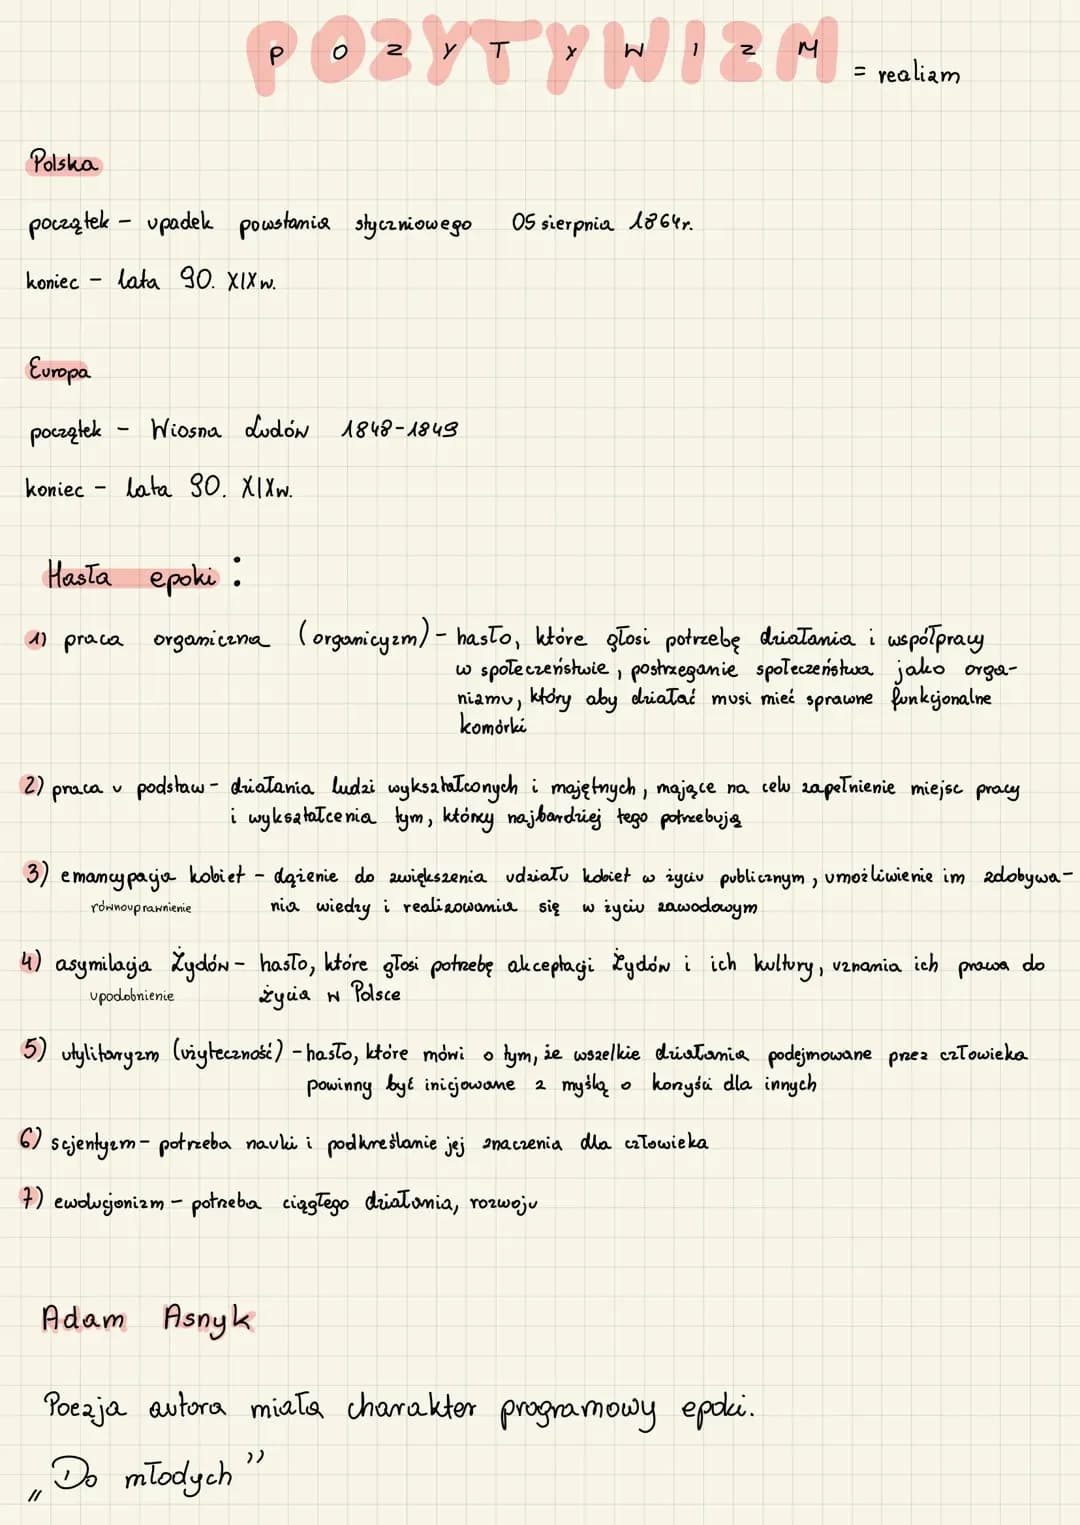 POZYTYWIZM = realizm
Polska
początek - upadek powstania styczniowego 05 sierpnia 1864r.
koniec - lata 90. XIX w.
Europa
początek - Wiosna Ludów 1848-1849
koniec - lata 90. XIX w.
Hasła epoki:
1) praca organiczna (organicyzm) - hasło, które głosi potrzebę działania i współpracy
w społeczeństwie, postrzeganie społeczeństwa jako orga-
nizmu, który aby działać musi mieć sprawne funkcjonalne
komórki
2) praca u podstaw - działania ludzi wykształconych i majętnych, mające na celu zapełnienie miejsc pracy
i wykształcenia tym, którzy najbardziej tego potrzebują
3) emancypacja kobiet - dążenie do zwiększenia udziału kobiet w życiu publicznym, umożliwienie im zdobywa-
równouprawnienie nia wiedzy i realizowania się w życiu zawodowym
4) asymilacja Żydów - hasło, które głosi potrzebę akceptacji Żydów i ich kultury, uznania ich prawa do
upodobnienie życia w Polsce
5) utylitaryzm (użyteczność) - hasło, które mówi o tym, że wszelkie działania podejmowane przez człowieka
powinny być inicjowane z myślą o korzyści dla innych
6) scjentyzm - potrzeba nauki i podkreślanie jej znaczenia dla człowieka
7) ewolucjonizm - potrzeba ciągłego działania, rozwoju
Adam Asnyk
Poezja autora miała charakter programowy epoki.
„Do młodych”